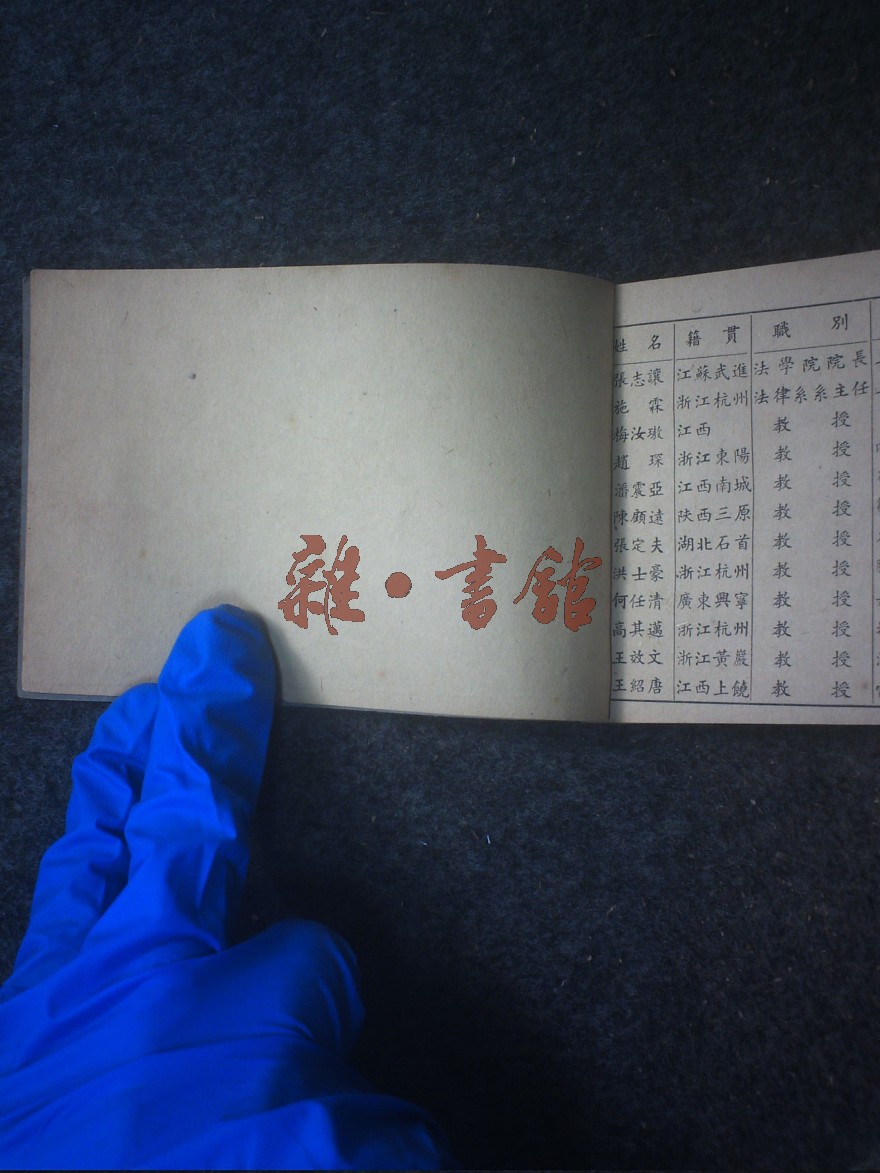 雜·書館
姓名 籍貫 職別
張志讓 江蘇武進 法學院院長 法律系系主任
施霖 浙江杭州
梅汝璈 江西 教授
趙琛 浙江東陽 教授
潘震亞 江西南城 教授
陳顧遠 陝西三原 教授
張定夫 湖北石首 教授
洪士豪 浙江杭州 教授
何任清 廣東興寧 教授
高其邁 浙江杭州 教授
王效文 浙江黃巖 教授
王紹唐 江西上饒 教授